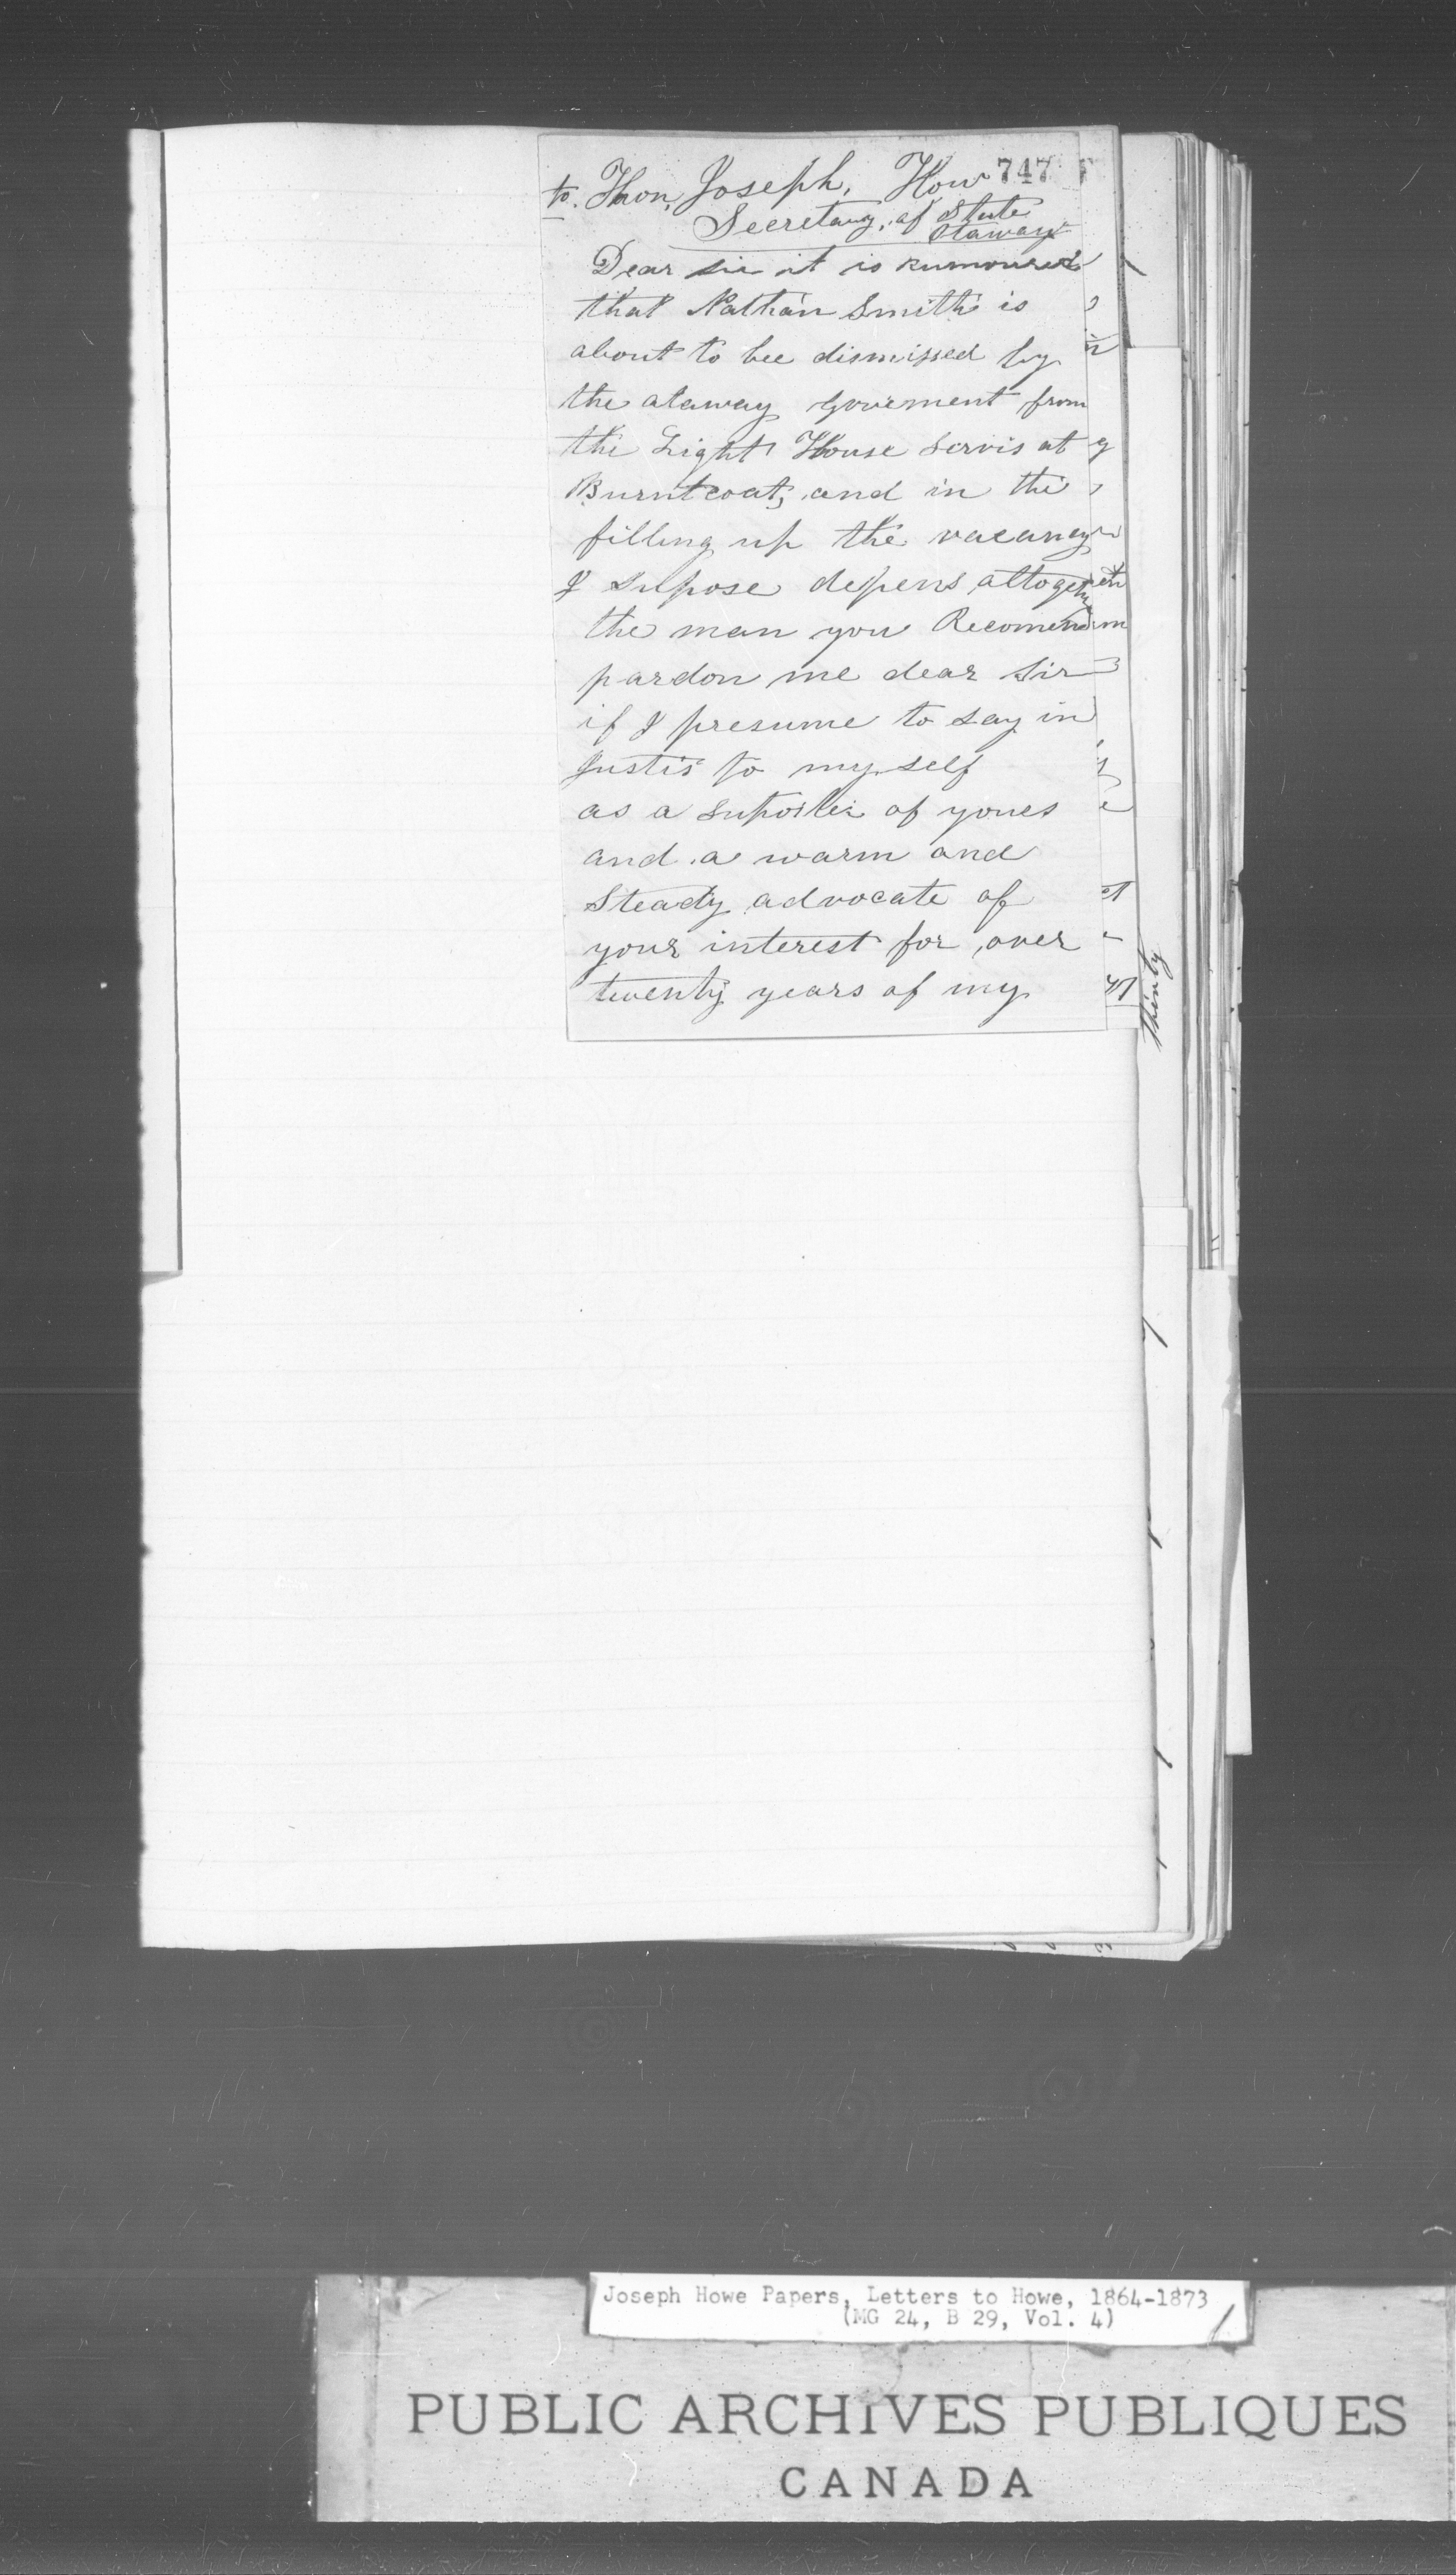 747
to. Thon, Joseph, How
Secretary, of State
Otaway
Dear sir it is Rumoured
that Nathan Smith is
about to bee dismissed by
the ataway Goverment from
the Light House Servis at
Burntcoat, and in the
filling up the vacancy
I Supose depens altogeth
the man you Recomend
pardon me dear Sir
if I presume to say in
Justis to my self
as a Suporter of youes
and a warm and
Steady advocate of
your interest for over
twenty years of my
thirty
Joseph Howe Papers, Letters to Howe, 1864-1873
(MG 24, B 29, Vol. 4)
PUBLIC ARCHIVES PUBLIQUES
CANADA